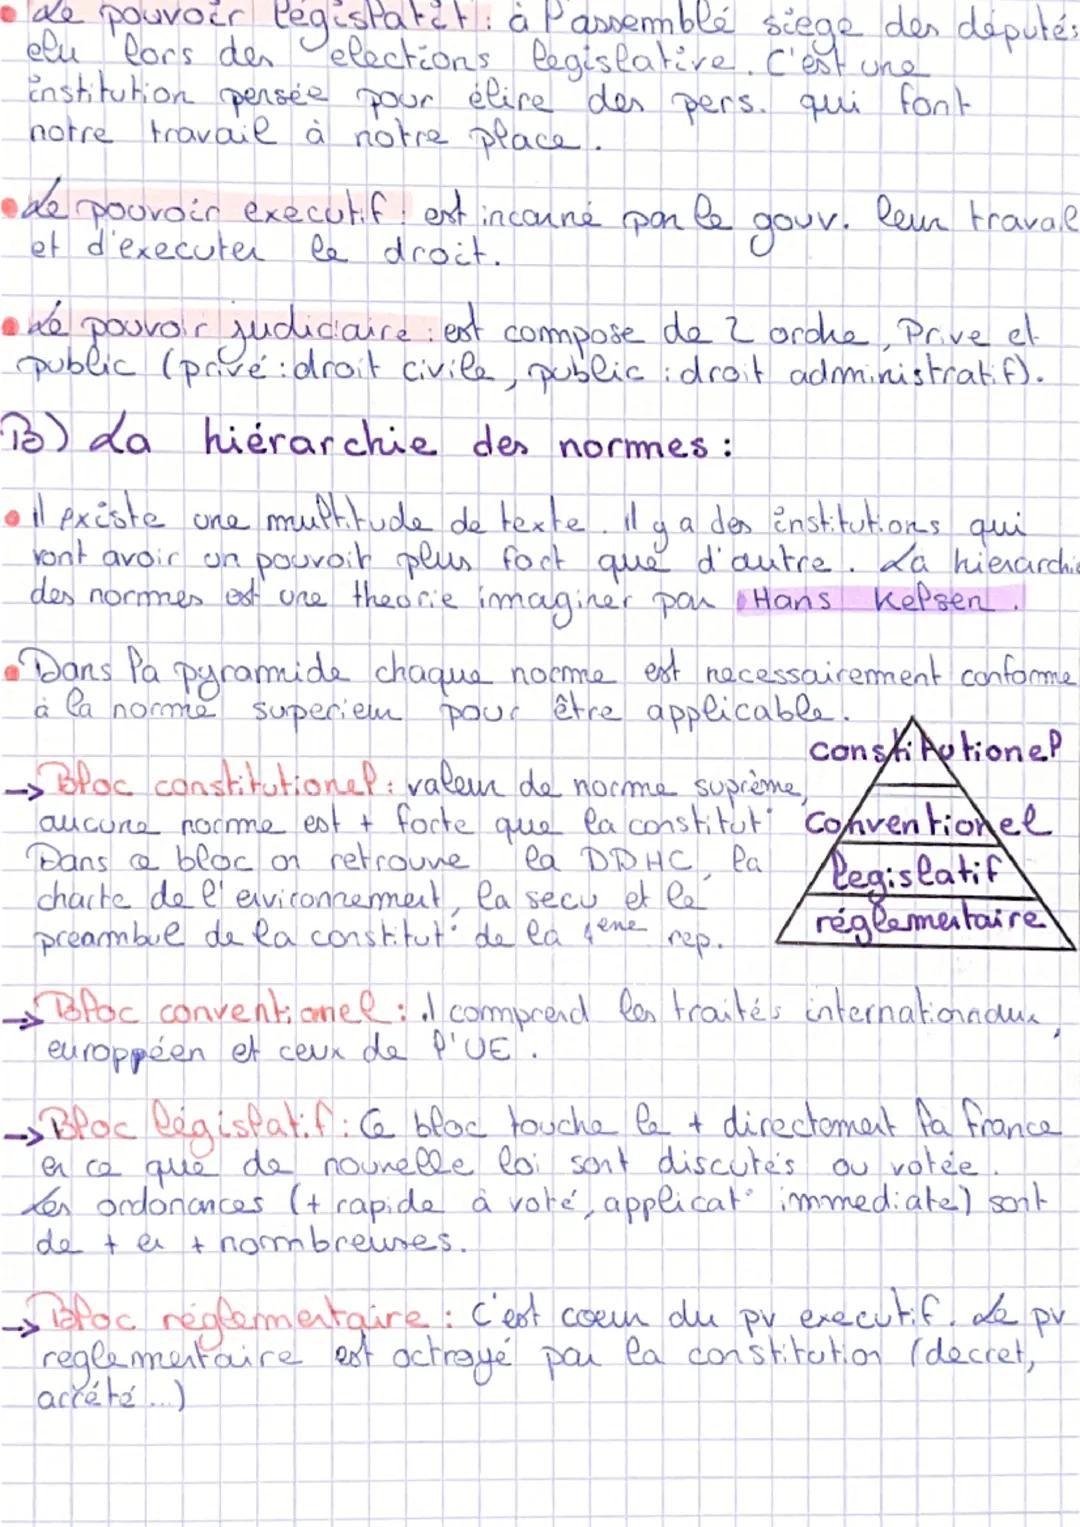 • Le pouvoir législatif : à l'assemblé siège des députés
elu lors des elections legislative. C'est une
institution pensée pour élire des pers. qui font
notre travail à notre place.
• Le pouvoir executif : est incarné par le gouv. leur travail
et d'executer le droit.
• Le pouvoir judiciaire : est compose de 2 ordre, Prive et
public (privé : droit civile, public : droit administratif).
B) La hiérarchie des normes :
• il existe une multitude de texte. il y a des institutions qui
vont avoir un pouvoir plus fort que d'autre. La hierarchie
des normes est une theorie imaginer par Hans Kelsen.
• Dans la pyramide chaque norme est necessairement conforme
à la norme superieur pour être applicable.
→ Bloc constitutionel : valeur de norme suprème,
aucune norme est + forte que la constitut°
Dans ce bloc on retrouve la DDHC, la
charte de l'environnement, la secu et le
preambule de la constitut° de la 4ème rep.
constitutionel
conventionel
legislatif
réglementaire
→ Bloc conventionel : il comprend les traités internationnaux,
europpéen et ceux de l'UE.
→ Bloc législatif : Ce bloc touche le + directement la france
en ce que de nouvelle loi sont discutés ou votée.
Les ordonances (+ rapide à voté, applicat° immediate) sont
de + en + nombreuses.
→ Bloc réglementaire : C'est coeur du pv executif. Le pv
reglementaire est octroyé par la constitution (decret,
arrété...)